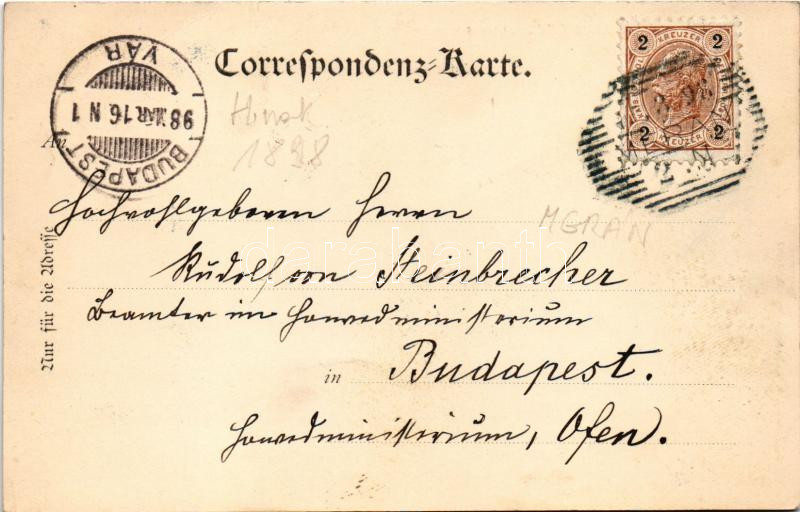 Correspondenz-Karte.
BUDAPEST
98 MAR 16 N 1
VÁR
2 KREUZER 2
2 KREUZER 2
1898
An
Hochwohlgeboren Herrn
MERAN
Rudolf von Steinbrecher
Beamter im Honvedministerium
in Budapest.
Honvedministerium, Ofen.
Nur für die Adresse
darabanth